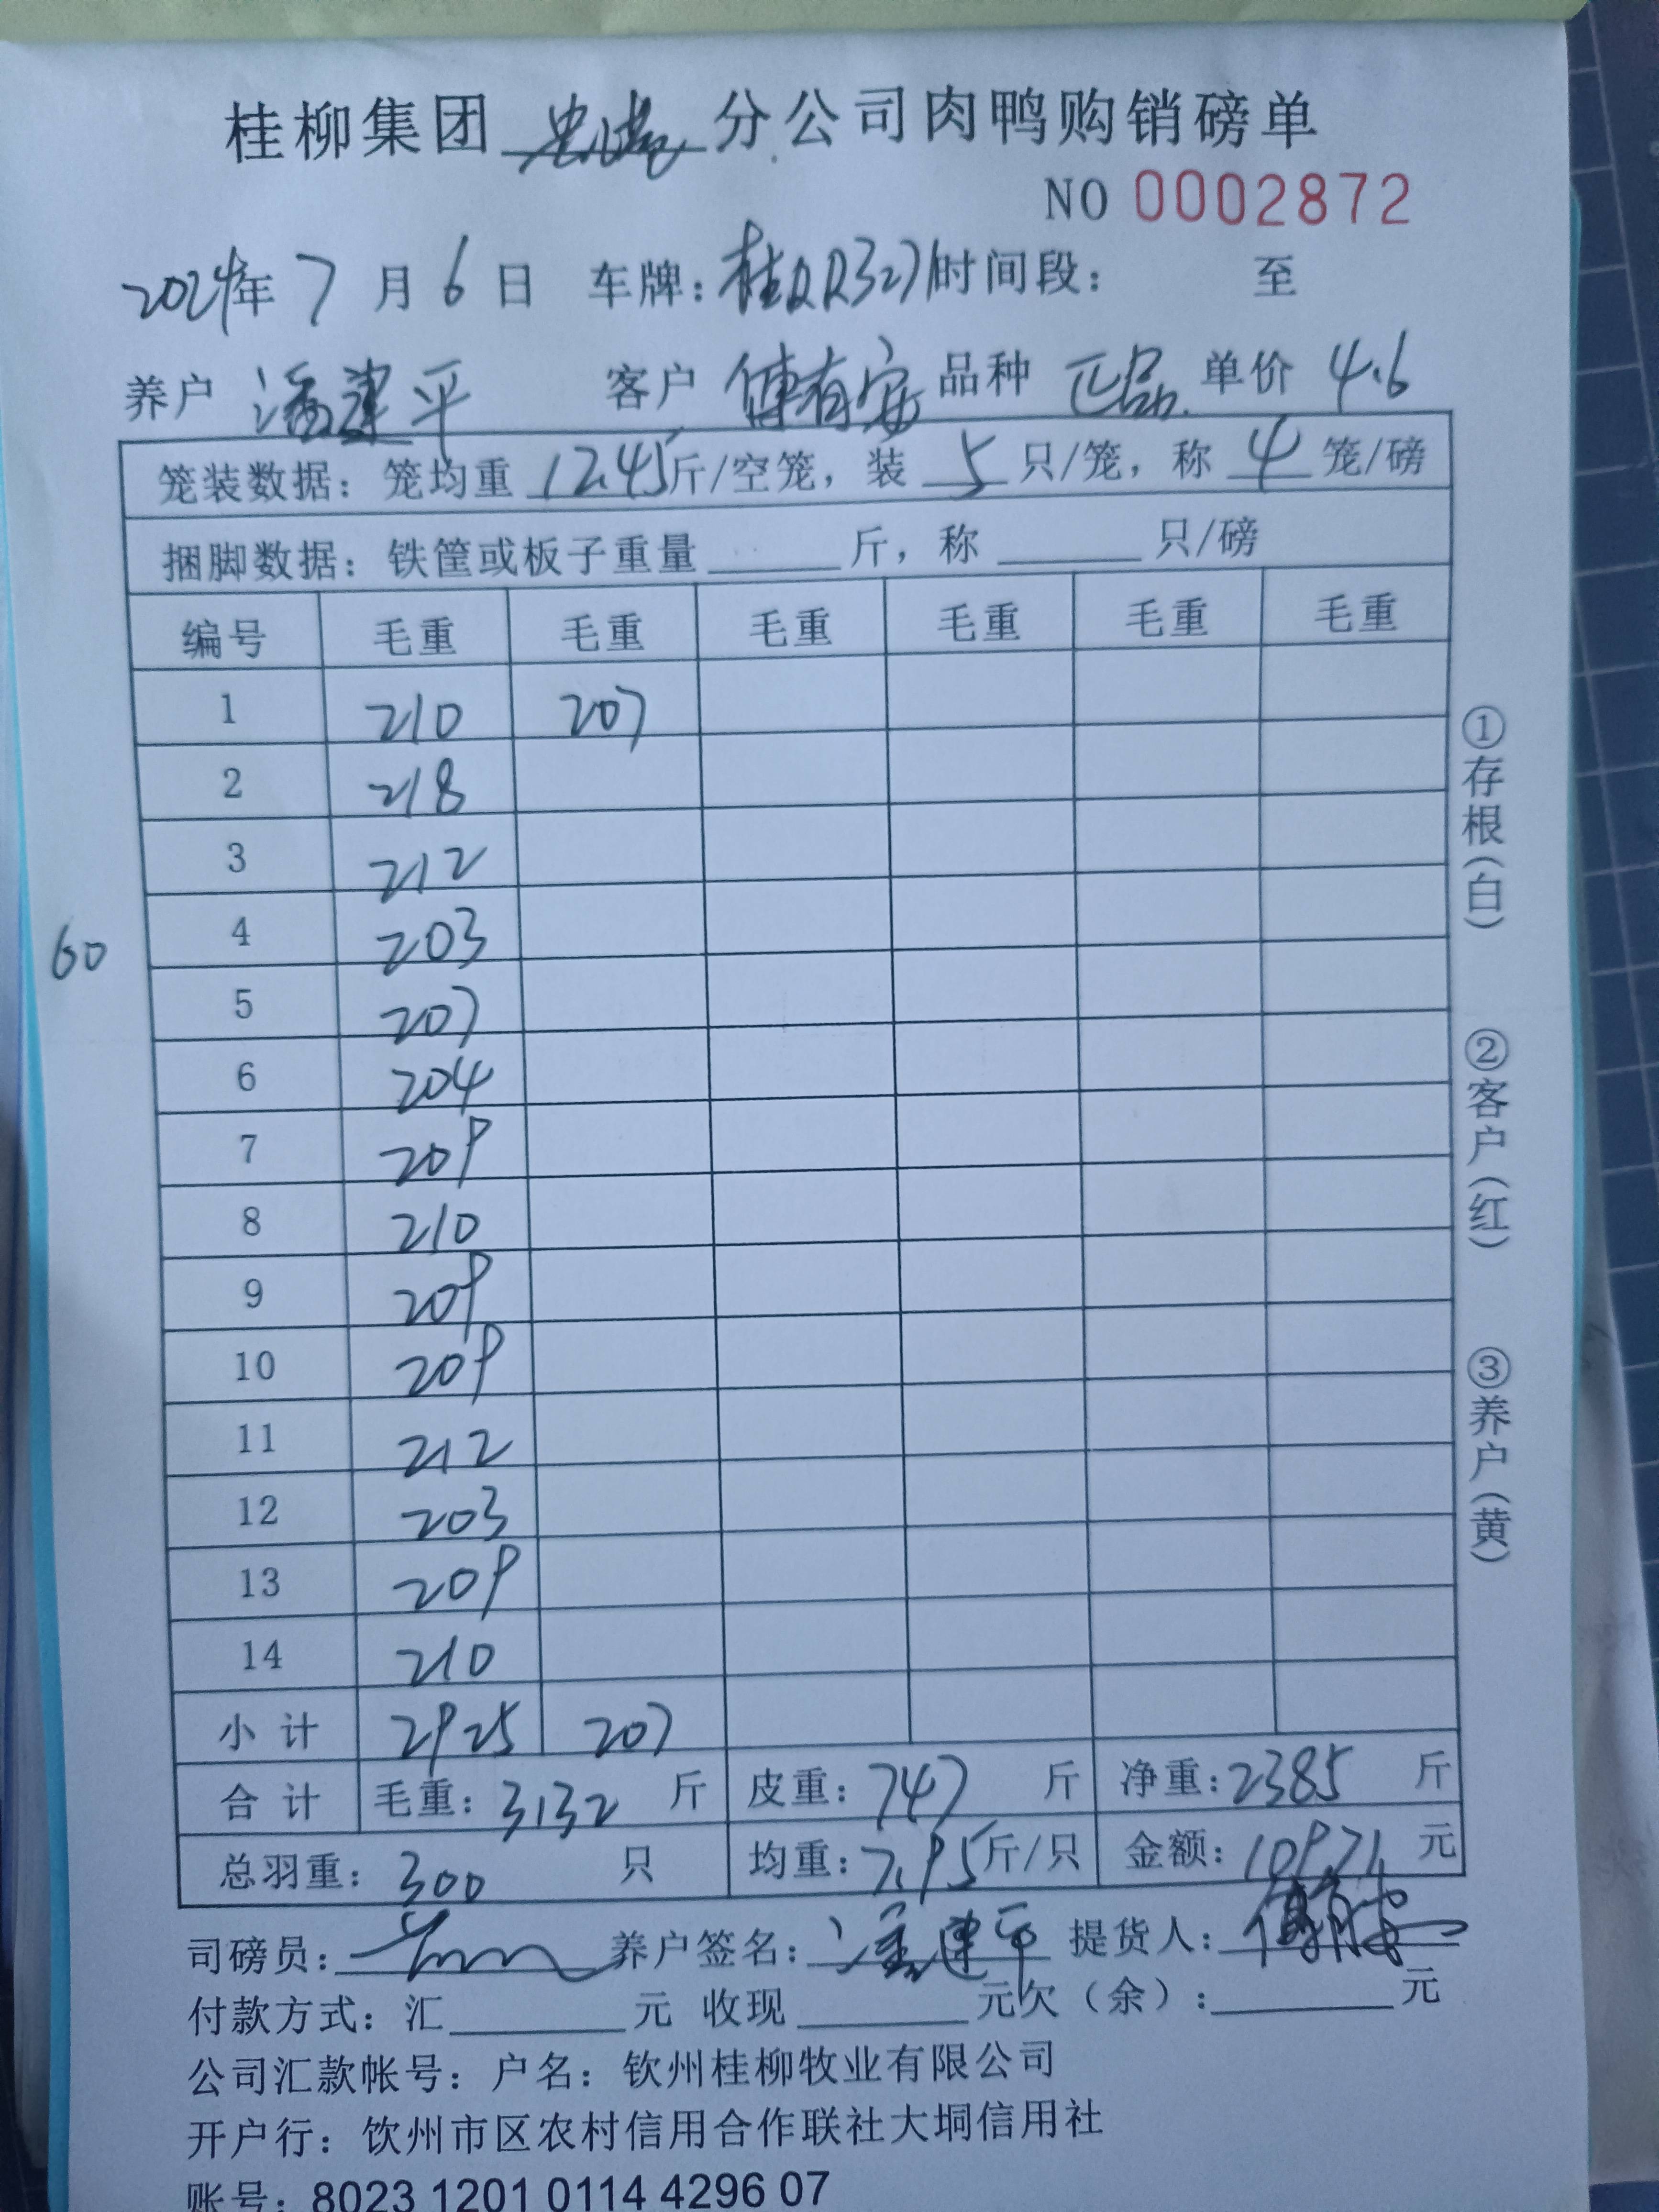 桂柳集团 分公司肉鸭购销磅单
NO 0002872
2024年 7 月 6 日 车牌: 桂 R3271 时间段: 至
养户 潘建平 客户 傅有安 品种 正品 单价 4.6
笼装数据: 笼均重 12.45 斤/空笼, 装 5 只/笼, 称 4 笼/磅
捆脚数据: 铁筐或板子重量 斤, 称 只/磅
编号 毛重 毛重 毛重 毛重 毛重 毛重
1 210 207
2 218
3 212
4 203
60
5 207
6 204
7 209
8 210
9 209
10 209
11 212
12 203
13 209
14 210
小计 2925 207
合计 毛重: 3132 斤 皮重: 747 斤 净重: 2385 斤
总羽重: 300 只 均重: 7.95 斤/只 金额: 10971 元
司磅员: 养户签名: 潘建平 提货人:
付款方式: 汇 元 收现 元欠(余): 元
公司汇款帐号: 户名: 钦州桂柳牧业有限公司
开户行: 钦州市区农村信用合作联社大垌信用社
账号: 8023 1201 0114 4296 07
①存根(白)
②客户(红)
③养户(黄)